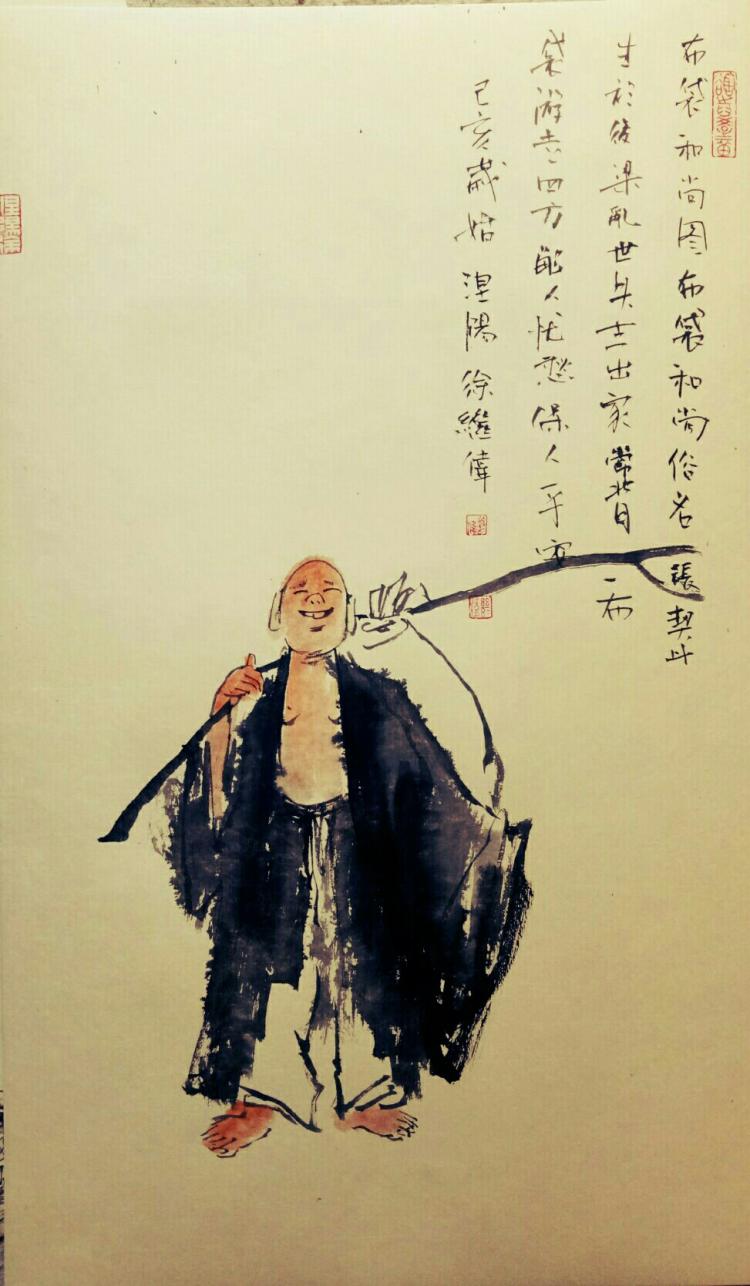 布袋和尚图布袋和尚俗名張契此
生於後梁乱世出家常背一布
袋游走四方解人忧愁保人平安
己亥歲始 涅陽 徐繼偉